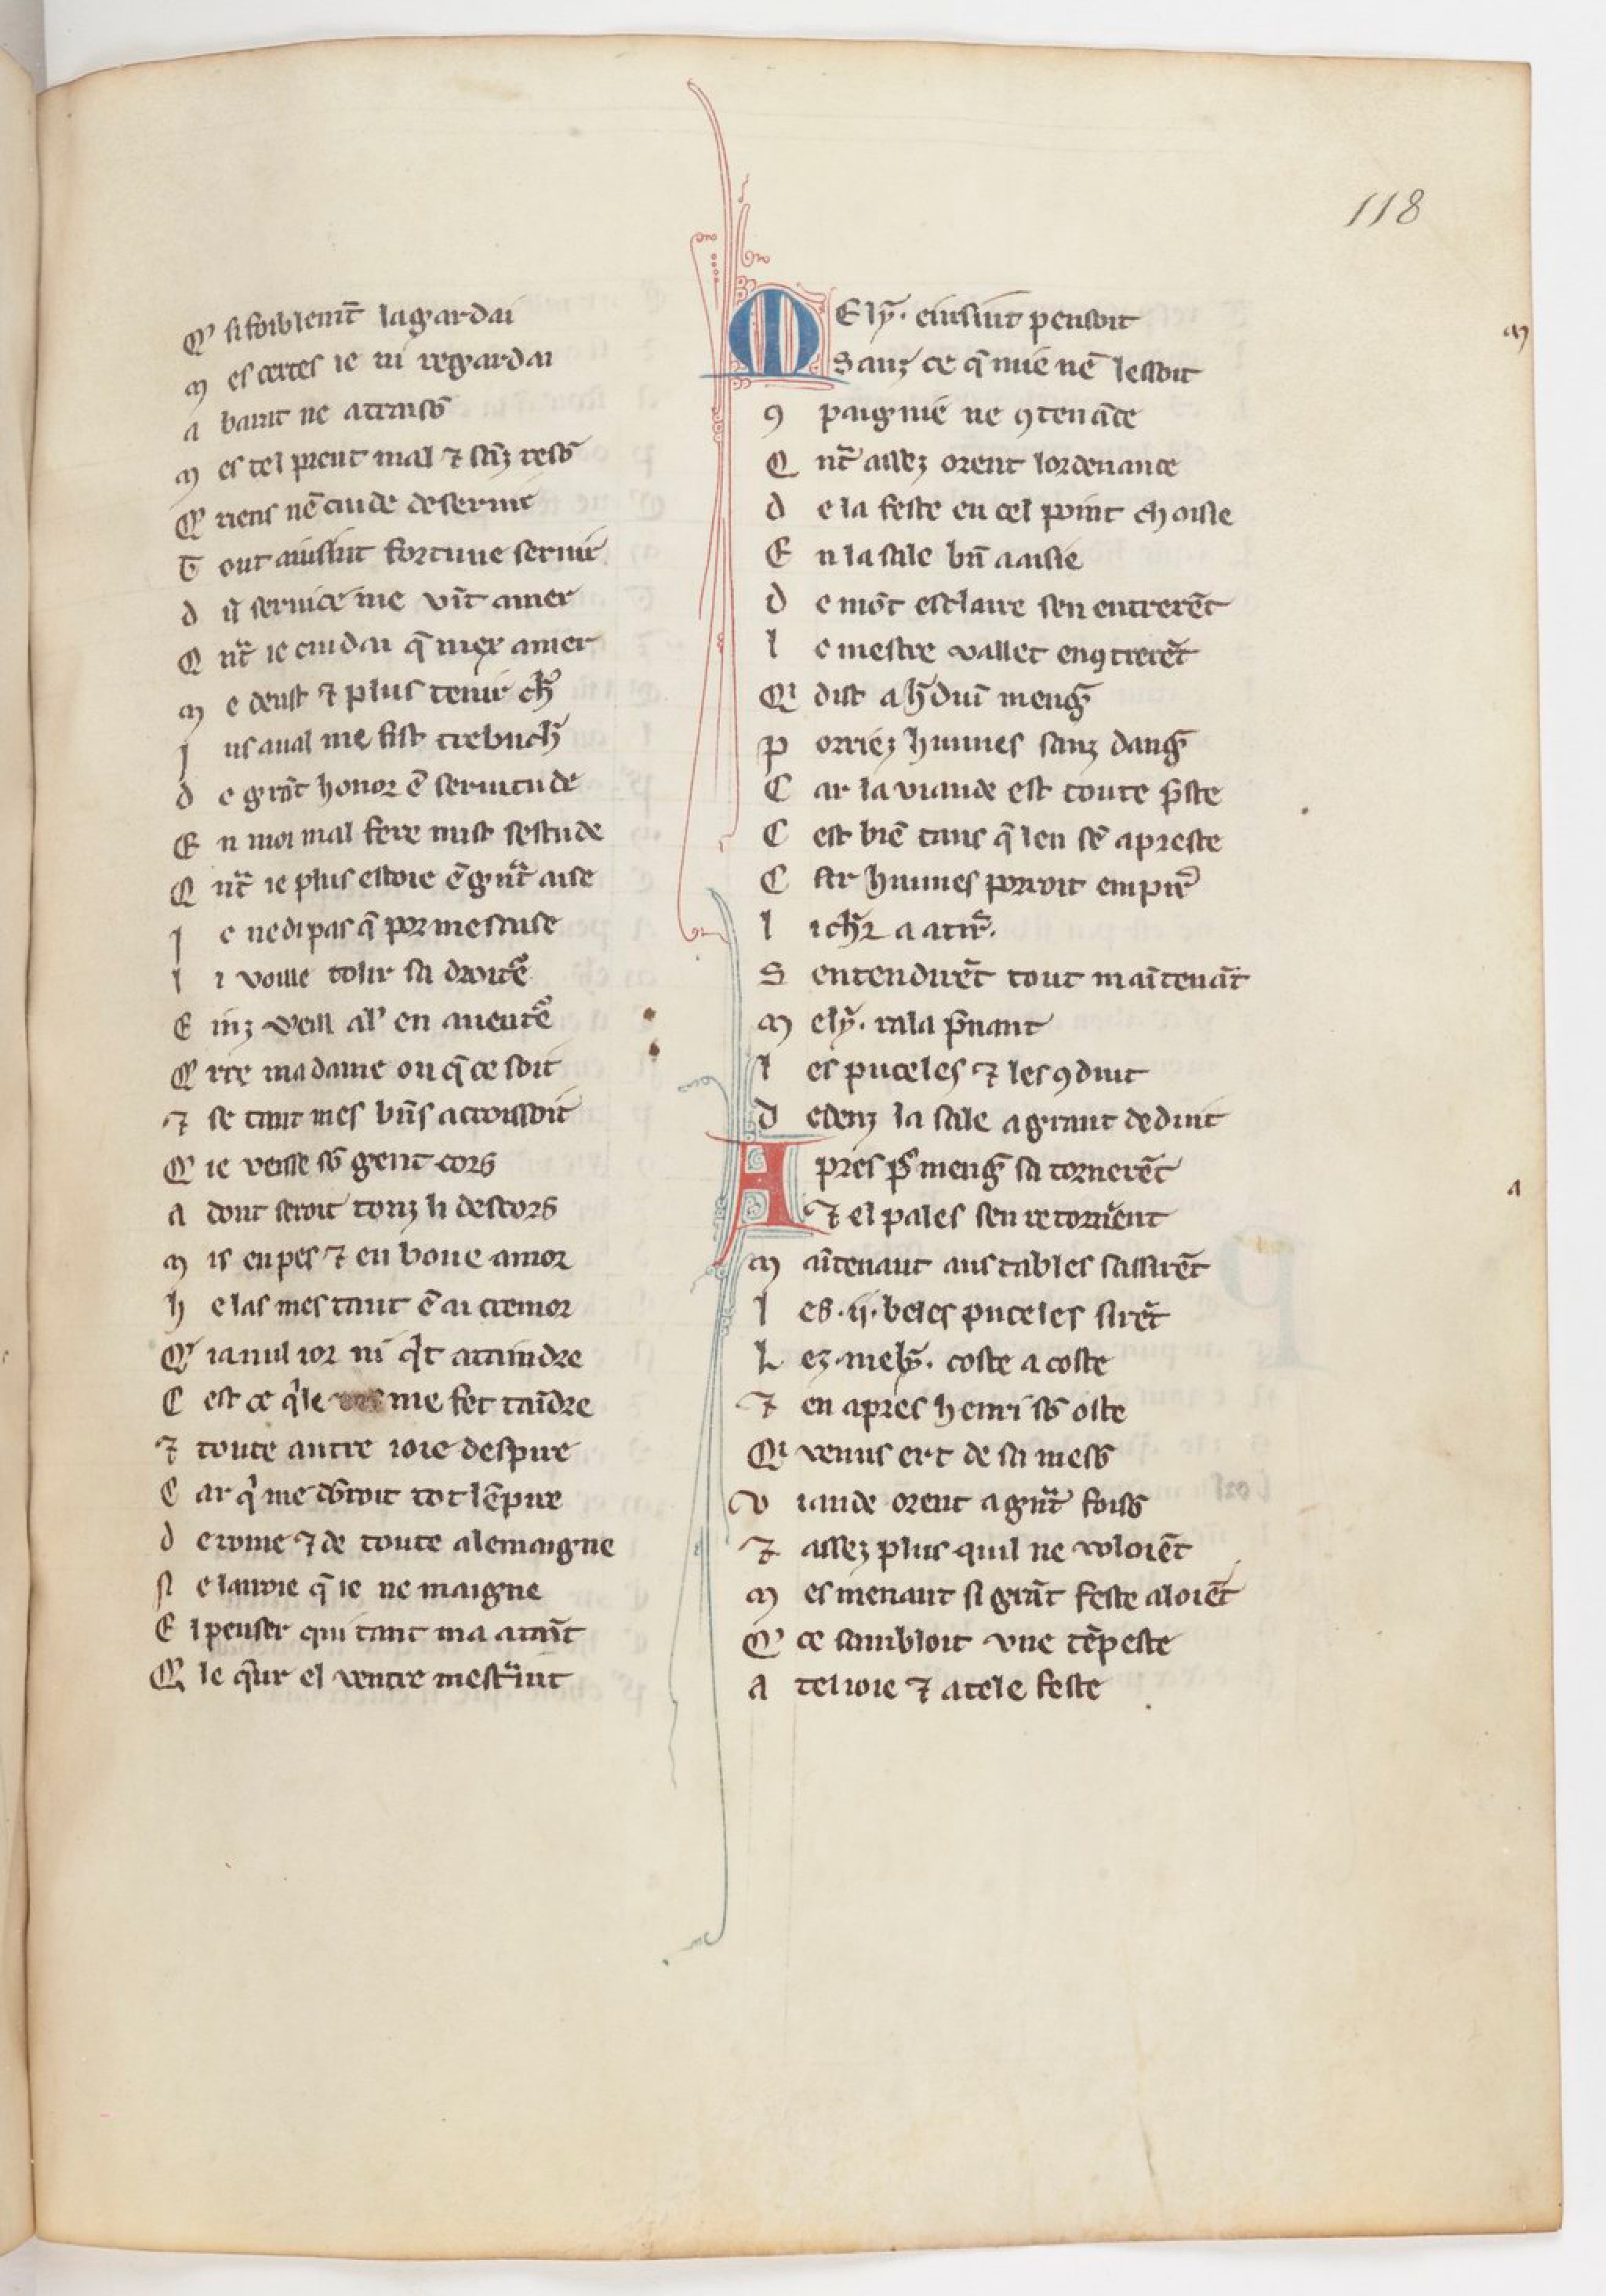 118
Q' si foiblem̄t la gardai
M es certes ie ni regardai
A barat ne a traisō
M es tel prent mal ⁊ sāz resō
Q' riens nē cuide deseruir
T out ainsint fortune seruir
D
Q nt̄ ie cuidai q̄ miex amer
M e deust ⁊ plus tenir ch̄r
J us aual me fist trebuch̄
D e grāt honor ē seruitude
E n moi mal fere mist sestude
Q nt̄ ie plus estoie ē gnt̄ aise
J e ne di pas q̄ por mesaise
L i voille tolir sa droit̄e
E inz veill al' en auent̄e
Q' rre ma dame ou q̄ ce soit
⁊ se tant mes bn̄s acroissoit
Q' ie veisse sō gent cors
A dont seroit touz li descors
M is en pes ⁊ en bone amor
H e las mes tant ē ai cremor
Q' ia nul ior ni q̄t ataindre
C est ce q'le me fet taīdre
⁊ toute autre ioie despire
C ar q' me dōroit tot lēpire
D e rome ⁊ de toute alemaigne
N e lauroie q̄ ie ne maigne
E l penser qui tant ma ataīt
Q' le q̄ur el ventre mestaint
M Elȳ. einsint pensoit
Sanz ce q̄ mie nē lessoit
9 paignie ne 9tenāce
Q nt̄ assez orent lordenance
D e la feste en cel point choisie
E n la sale bn̄ aaisie
D e mōt esclaire sen entrerēt
L e mestre vallet en9trerēt
Qi dist a h̄dui menḡ
P orriez huimes sanz danḡ
C ar la viande est toute p̄ste
C est biē tans q̄ len sē apreste
C ar huimes porroit empir̄
L i ch̄r a atir̄.
S entendirēt tout maītenāt
M elȳ. va la p̄nant
L es puceles ⁊ les 9duit
D edenz la sale a grant deduit
A pres p̄ menḡ sa tornerēt
⁊ el pales sen retornēnt
M aītenant aus tables sassirēt
L es .ij. beles puceles sirēt
L ez melȳ. coste a coste
⁊ en apres henri sō oste
Qi venus ert de sa mesō
V iande orent a gnt̄ foisō
⁊ assez plus quil ne voloiēt
M es menant si grāt feste aloiēt
Q' ce sambloit vne tēpeste
A tel ioie ⁊ a tele feste
m
a